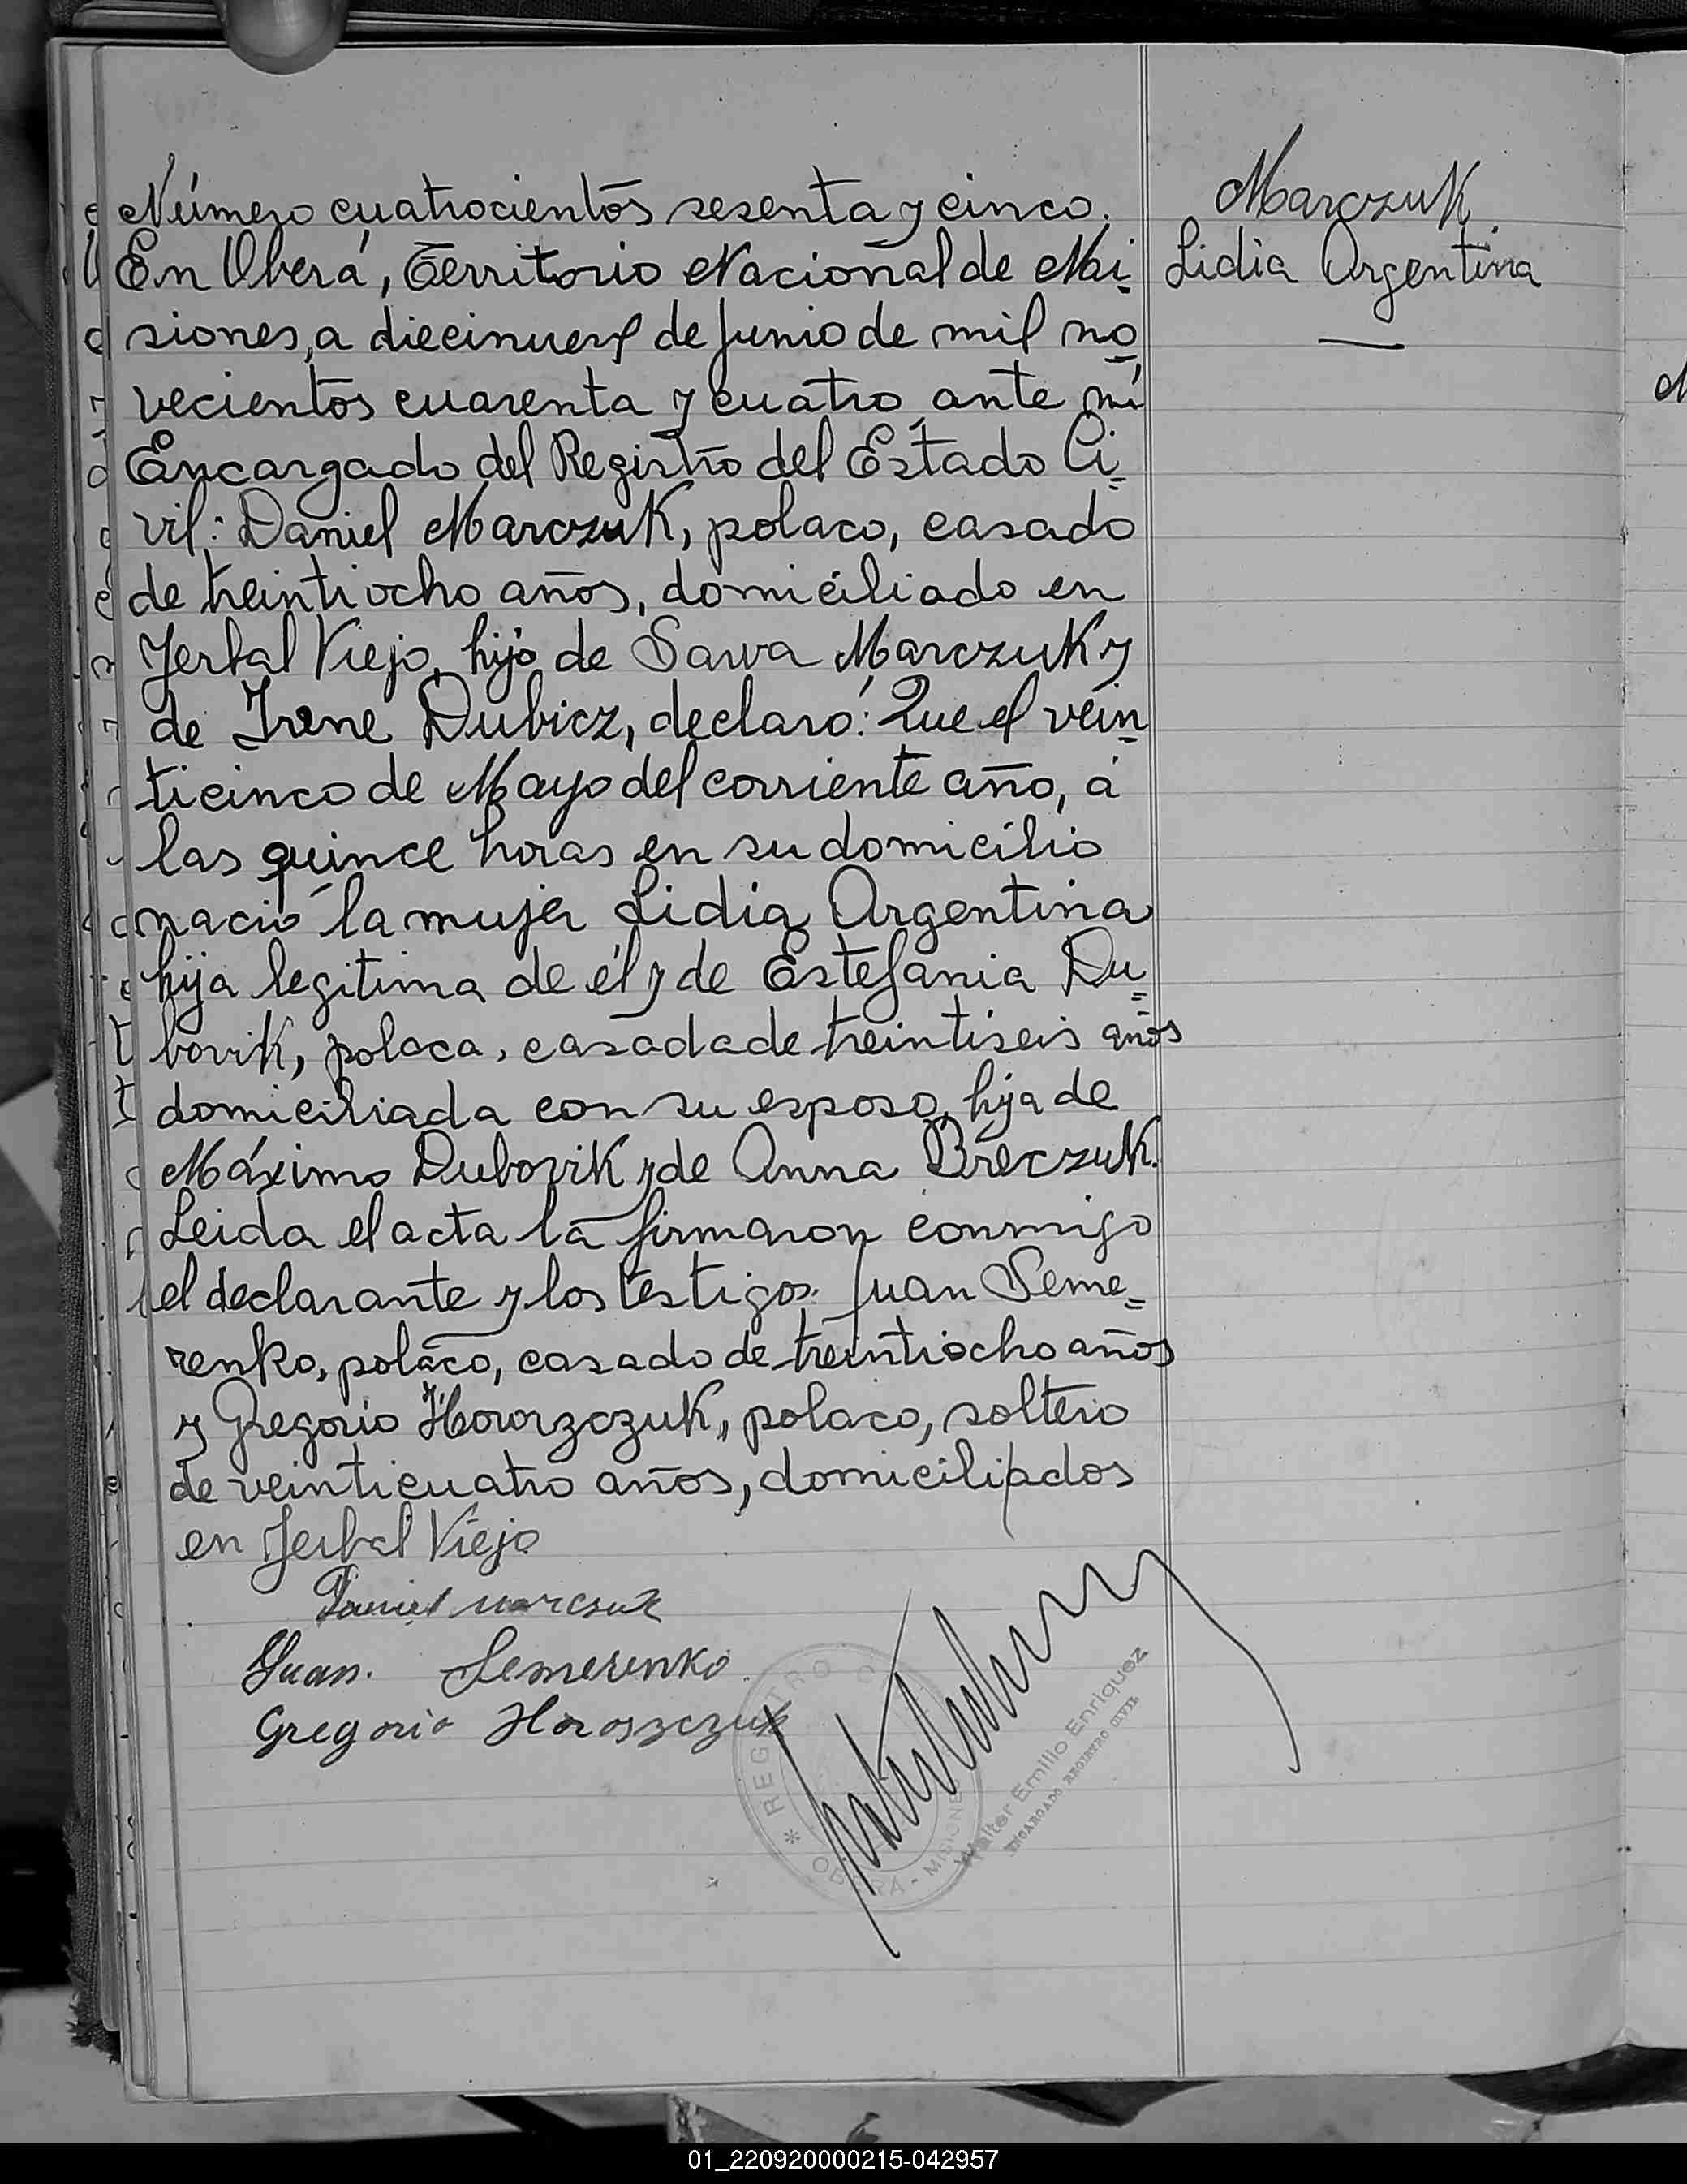 Número cuatrocientos sesenta y cinco.
En Oberá, Territorio Nacional de Mi-
siones, a diecinueve de Junio de mil no-
vecientos cuarenta y cuatro, ante mí
Encargado del Registro del Estado Ci-
vil: Daniel Marczuk, polaco, casado
de treintiocho años, domiciliado en
Yerbal Viejo, hijo de Sawa Marczuk y
de Irene Dubicz, declaró: Que el vein-
ticinco de Mayo del corriente año, a
las quince horas en su domicilio
nació la mujer Lidia Argentina
hija legitima de él y de Estefania Du-
bovik, polaca, casada de treintiseis años
domiciliada con su esposo, hija de
Máximo Dubovik y de Anna Breczuk.
Leida el acta la firmaron conmigo
el declarante y los testigos: Juan Seme-
renko, polaco, casado de treintiocho años
y Gregorio Horoszczuk, polaco, soltero
de veinticuatro años, domiciliados
en Yerbal Viejo
Daniel Marczuk
Juan. Semerenko.
Gregorio Horoszczuk
Marczuk
Lidia Argentina
REGISTRO
OBERA - MISIONES
Walter Emilio Enriquez
ENCARGADO REGISTRO CIVIL
01_220920000215-042957